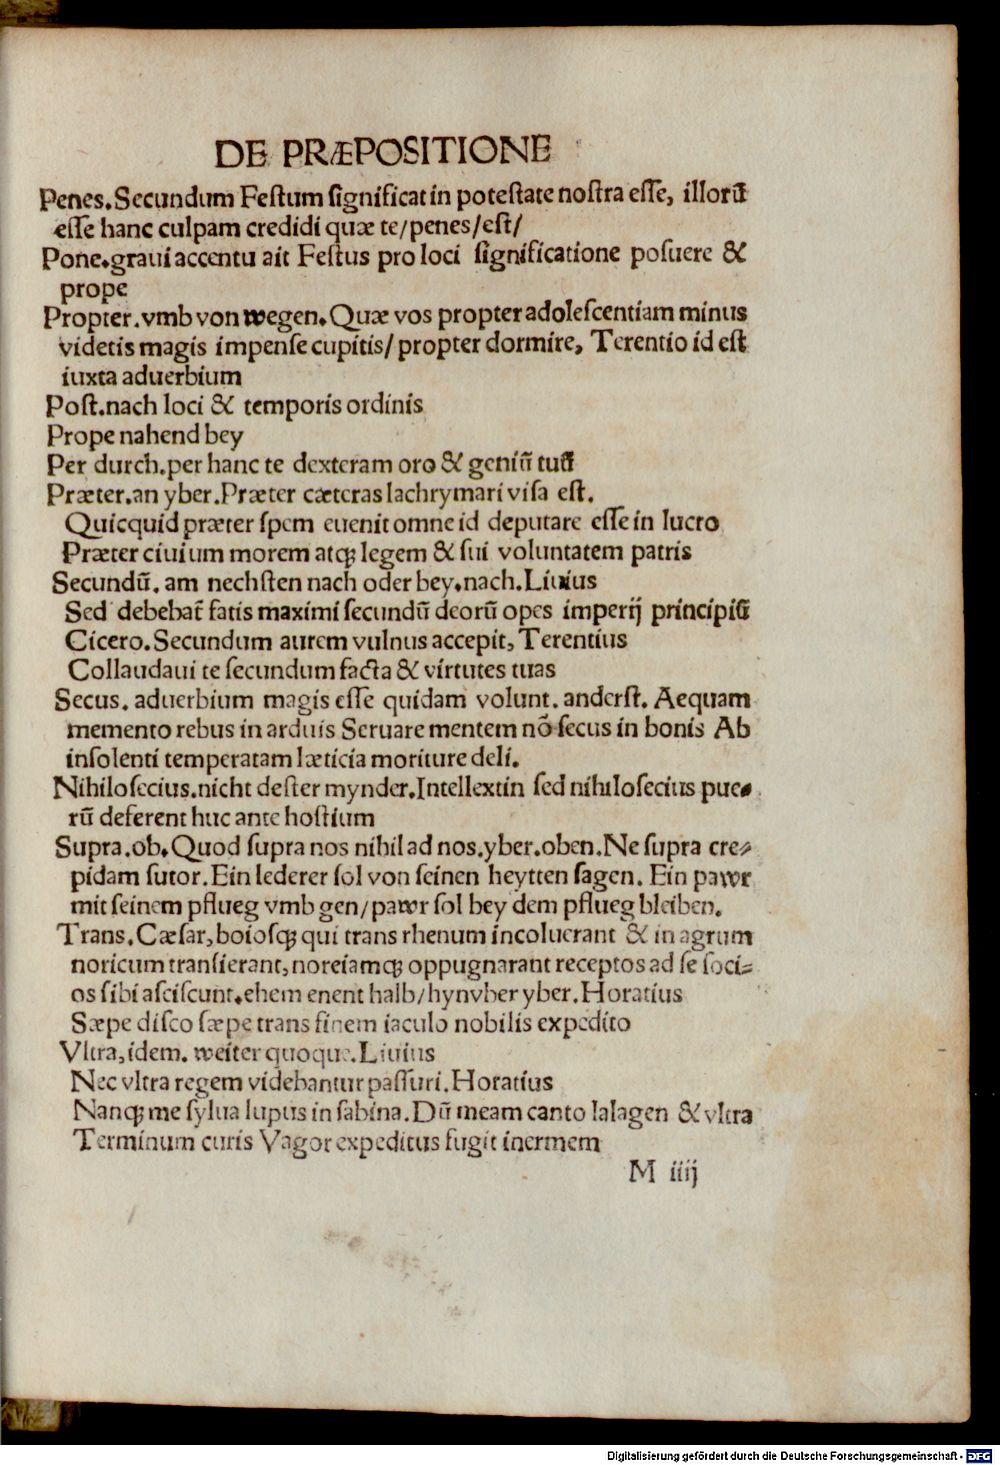 DE PRÆPOSITIONE
Penes. Secundum Festum significat in potestate nostra esse, illorū
esse hanc culpam credidi quæ te/penes/est/
Pone. graui accentu ait Festus pro loci significatione posuere &
prope
Propter. vmb von wegen. Quæ vos propter adolescentiam minus
videtis magis impense cupitis/propter dormire, Terentio id est
iuxta aduerbium
Post. nach loci & temporis ordinis
Prope nahend bey
Per durch. per hanc te dexteram oro & geniū tuū
Præter. an yber. Præter cæteras lachrymari visa est.
Quicquid præter spem euenit omne id deputare esse in lucro
Præter ciuium morem atqꝫ legem & sui voluntatem patris
Secundū. am nechsten nach oder bey. nach. Liuius
Sed debebat᷑ fatis maximi secundū deorū opes imperij principiū
Cicero. Secundum aurem vulnus accepit, Terentius
Collaudaui te secundum facta & virtutes tuas
Secus. aduerbium magis esse quidam volunt. anderst. Aequam
memento rebus in arduis Seruare mentem nō secus in bonis Ab
insolenti temperatam læticia moriture deli.
Nihilosecius. nicht dester mynder. Intellextin sed nihilosecius pue⸗
rū deferent huc ante hostium
Supra. ob. Quod supra nos nihil ad nos. yber. oben. Ne supra cre⸗
pidam sutor. Ein lederer sol von seinen heytten sagen. Ein pawr
mit seinem pflueg vmb gen/pawr sol bey dem pflueg bleiben.
Trans. Cæsar, boiosqꝫ qui trans rhenum incoluerant & in agrum
noricum transierant, noreiamqꝫ oppugnarant receptos ad se soci⸗
os sibi asciscunt. ehem enent halb/hynvber yber. Horatius
Sæpe disco sæpe trans finem iaculo nobilis expedito
Vltra, idem. weiter quoque. Liuius
Nec vltra regem videbantur passuri. Horatius
Nanqꝫ me sylua lupus in sabina. Dū meam canto lalagen & vltra
Terminum curis Vagor expeditus fugit inermem
M iiij
Digitalisierung gefördert durch die Deutsche Forschungsgemeinschaft - DFG